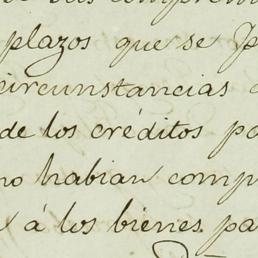 plazos que se
circunstancias
de los créditos
no habian comp
á los bienes pa